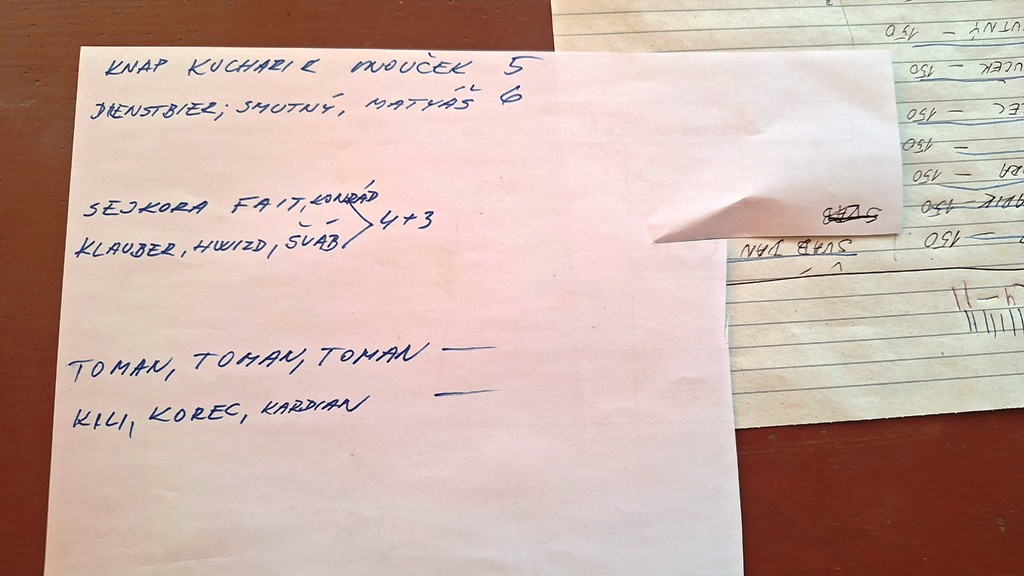 KNAP KUCHARIK VNOUČEK 5
DIENSTBIER; SMUTNÝ, MATYÁŠ 6
SEJKORA FAIT, KONRÁD
KLAUBER, HWIZD, ŠVÁB 4+3
TOMAN, TOMAN, TOMAN —
KILI, KOREC, KARDIAN —
ŠVÁB JAN
– 150
– 150
– 150
– 150
– 150
– 150